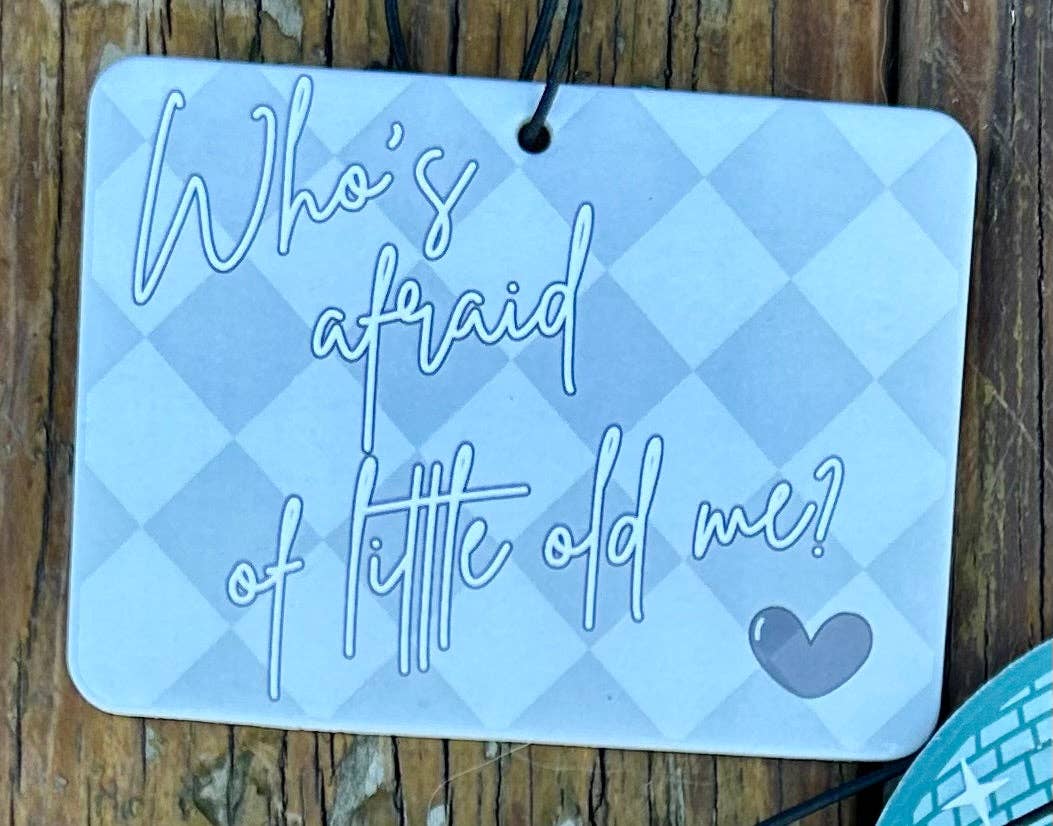 Who's
afraid
of little old me?